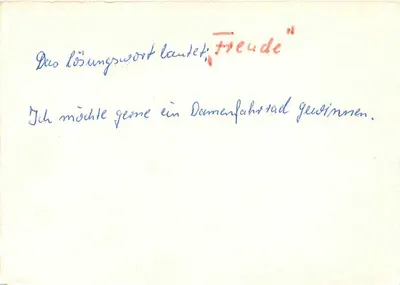 Das Lösungswort lautet: „Freude"
Ich möchte gerne ein Damenfahrrad gewinnen.